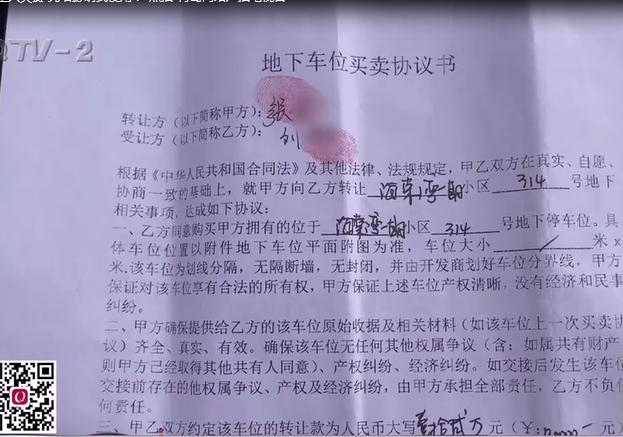 QTV-2
地下车位买卖协议书
转让方（以下简称甲方）：张
受让方（以下简称乙方）：刘
根据《中华人民共和国合同法》及其他法律、法规规定，甲乙双方在真实、自愿、
协商一致的基础上，就甲方向乙方转让 小区 314 号地下
相关事项，达成如下协议：
一、乙方同意购买甲方拥有的位于 小区 314 号地下停车位。具
体车位位置以附件地下车位平面附图为准，车位大小 / 米 x
米.该车位为划线分隔，无隔断墙，无封闭，并由开发商划好车位分界线，甲方
保证对该车位享有合法的所有权，甲方保证上述车位产权清晰，没有经济和民事
纠纷。
二、甲方确保提供给乙方的该车位原始收据及相关材料（如该车位上一次买卖协
议）齐全、真实、有效。确保该车位无任何其他权属争议（含：如属共有财产
则甲方已经取得其他共有人同意）、产权纠纷、经济纠纷。如交接后发生该车位
交接前存在的他权属争议、产权及经济纠纷，由甲方承担全部责任，乙方不负任
何责任。
三、甲乙双方约定该车位的转让款为人民币大写壹拾贰万元（￥： 元）